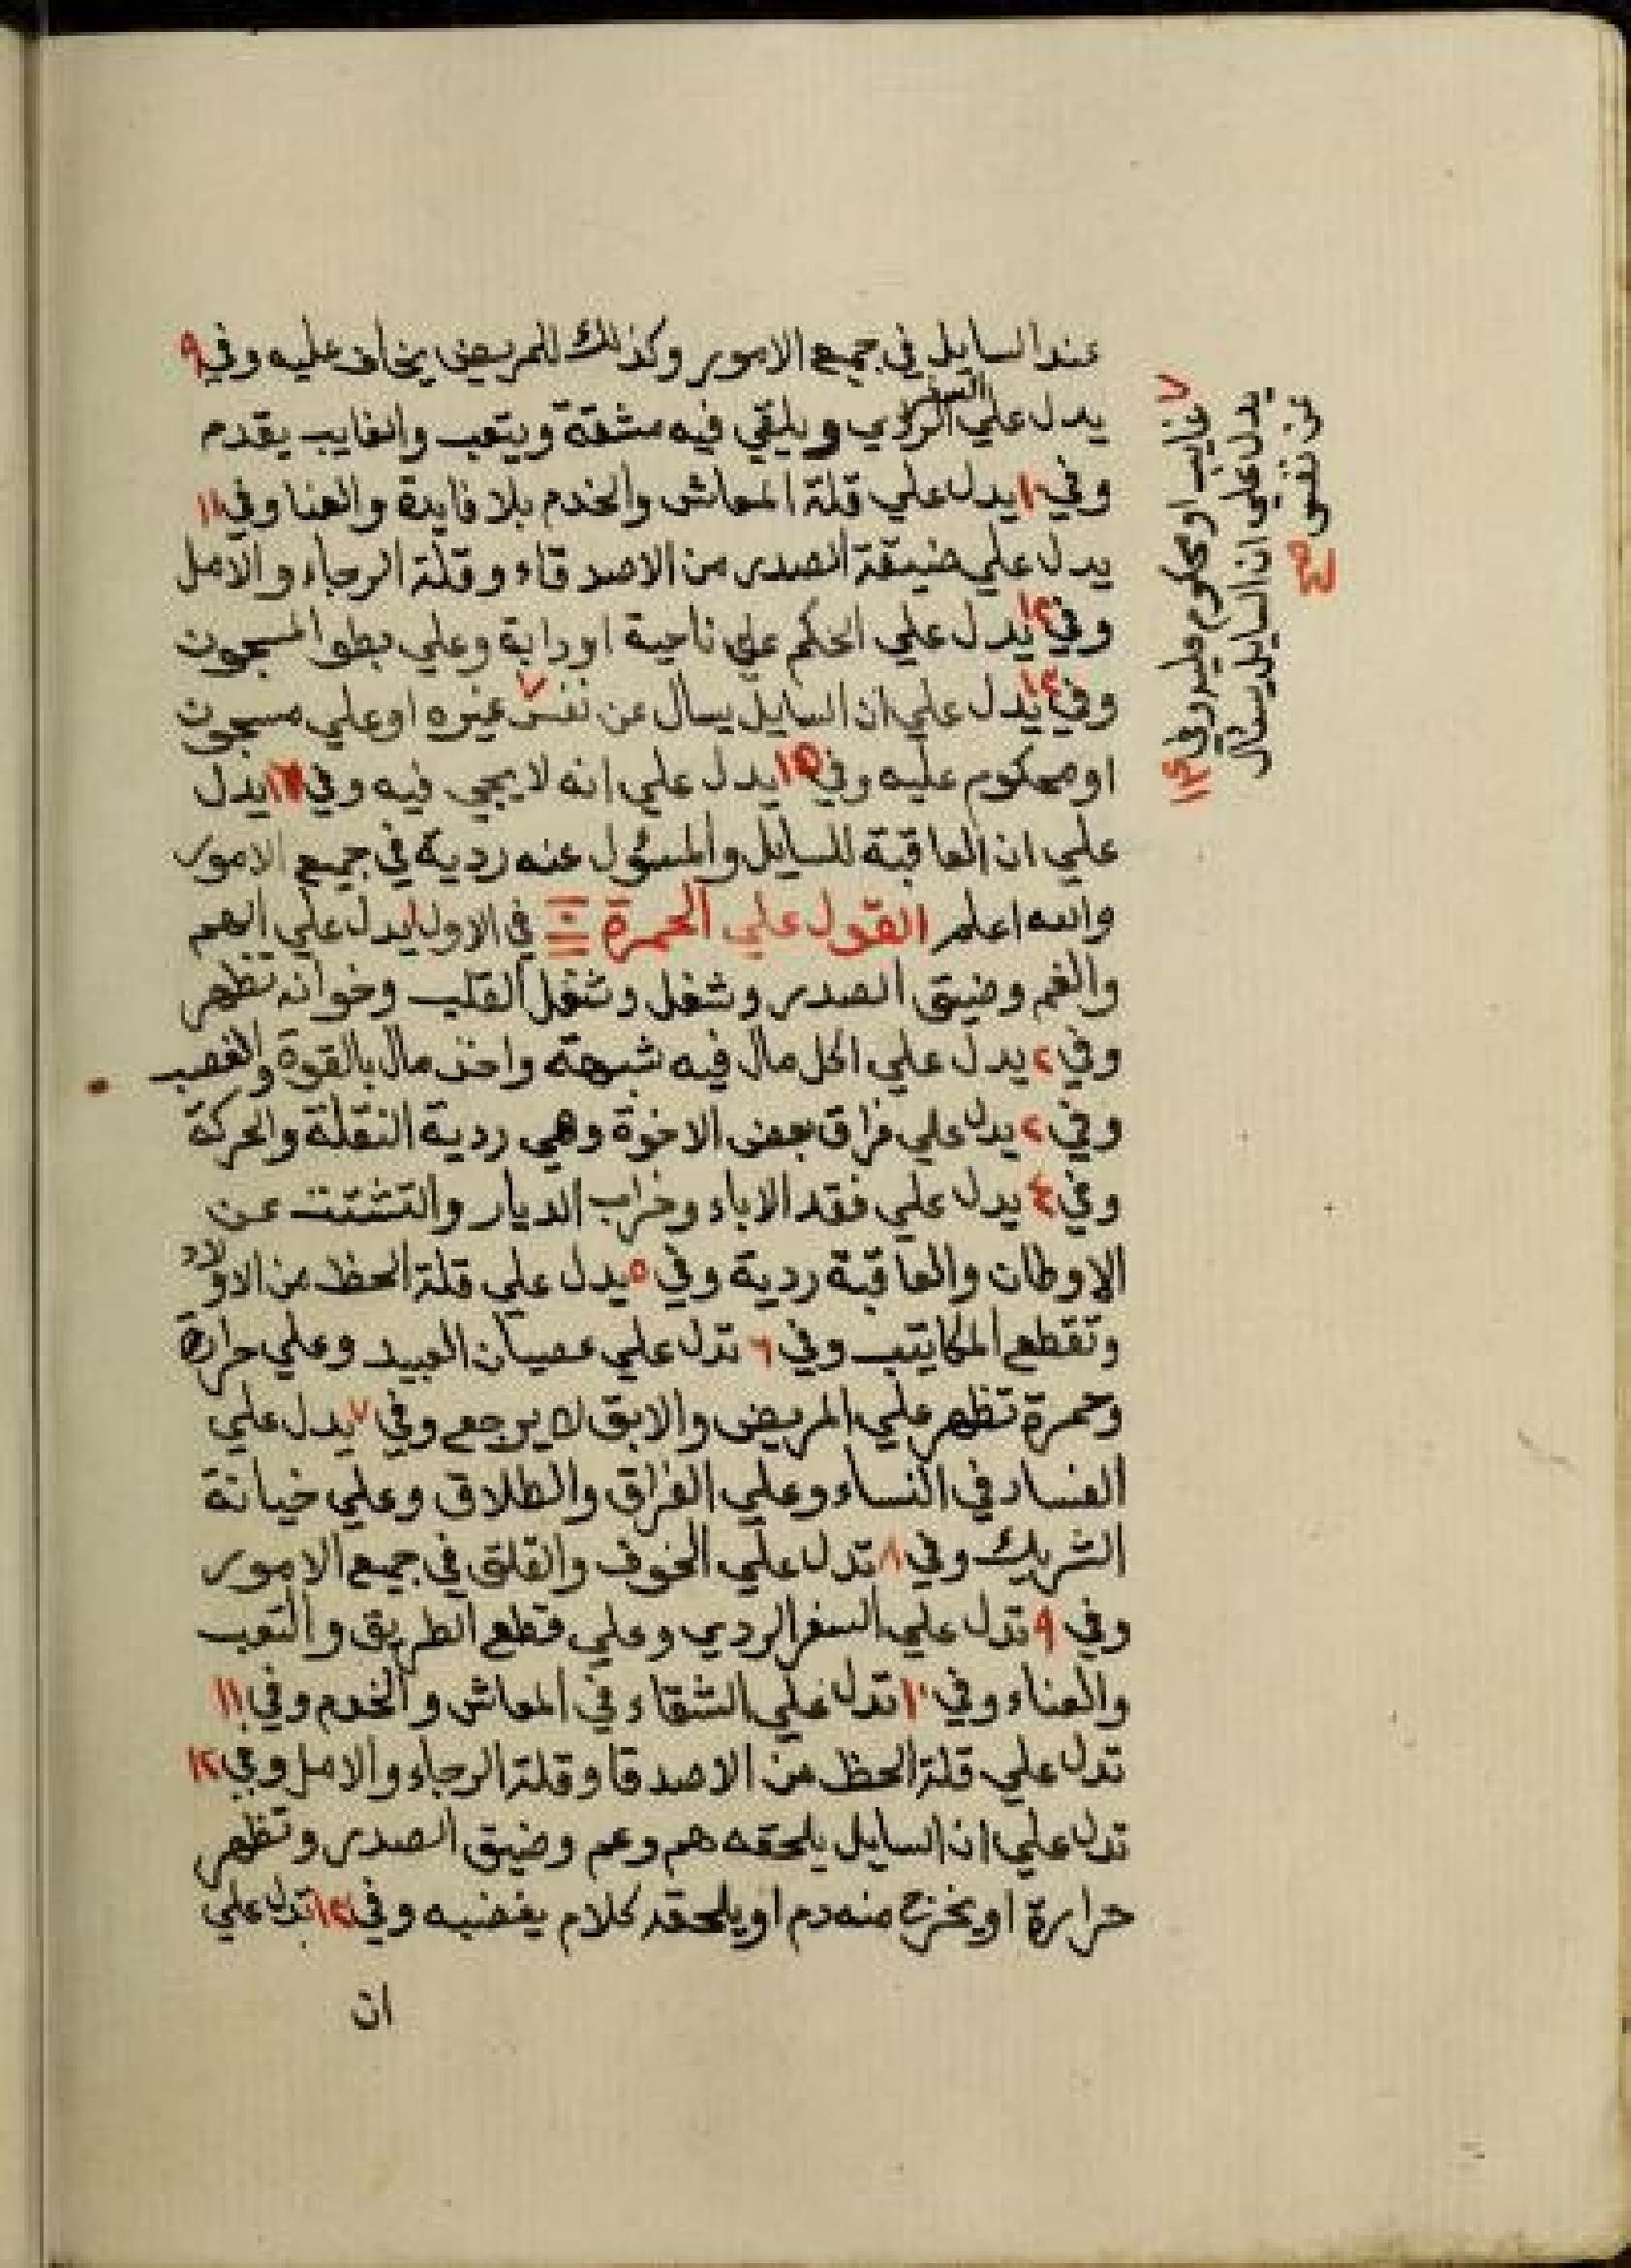 عند السايل في جميع الامور وكذلك للمريض يخاف عليه وفي ٩
يدل علي السفر الردي ويلتقي فيه مشقة ويتعب والغايب يقدم
وفي ١٠ يدل علي قلة المعاش والخدم بلا فايدة والعنا وفي ١١
يدل علي ضيقة الصدر من الاصدقاء وقلة الرجاء والامل
وفي ١٢ يدل علي الحكم علي ناحية او دابة وعلي بطو المسجون
وفي ١٣ يدل علي ان السايل يسال عن نفس غيره او علي مسجون
او محكوم عليه وفي ١٥ يدل علي انه لا يجي فيه وفي ١٦ يدل
علي ان العاقبة للسايل والمسؤل عنه ردية في جميع الامور
والله اعلم القول علي الحمرة في الاول يدل علي الهم
والغم وضيق الصدر وشغل وشغل القلب وخوانه تظهر
وفي ٢ يدل علي اكل مال فيه شبهة واخذ مال بالقوة والغصب
وفي ٣ يدل علي فراق بعض الاخوة وهي ردية النقلة والحركة
وفي ٤ يدل علي فقد الاباء وخراب الديار والتشتت عن
الاوطان والعاقبة ردية وفي ٥ يدل علي قلة الحظ من الاولاد
وتقطع المكاتيب وفي ٦ تدل علي عصيان العبيد وعلي حرارة
وحمرة تظهر علي المريض والابق لا يرجع وفي ٧ يدل علي
الفساد في النساء وعلي الفراق والطلاق وعلي خيانة
الشريك وفي ٨ تدل علي الخوف والقلق في جميع الامور
وفي ٩ تدل علي السفر الردي وعلي قطع الطريق والتعب
والعناء وفي ١٠ تدل علي الشقاء في المعاش والخدم وفي ١١
تدل علي قلة الحظ من الاصدقا وقلة الرجاء والامل وفي ١٢
تدل علي ان السايل يلحقه هم وعم وضيق الصدر وتظهر
حرارة او يخرج منه دم او يلحقه كلام يغضبه وفي ١٣ تدل علي
ان
٧ غايب او محكوم عليه وفي ١٤
يدل علي ان السايل يسال
عن نفسه صح